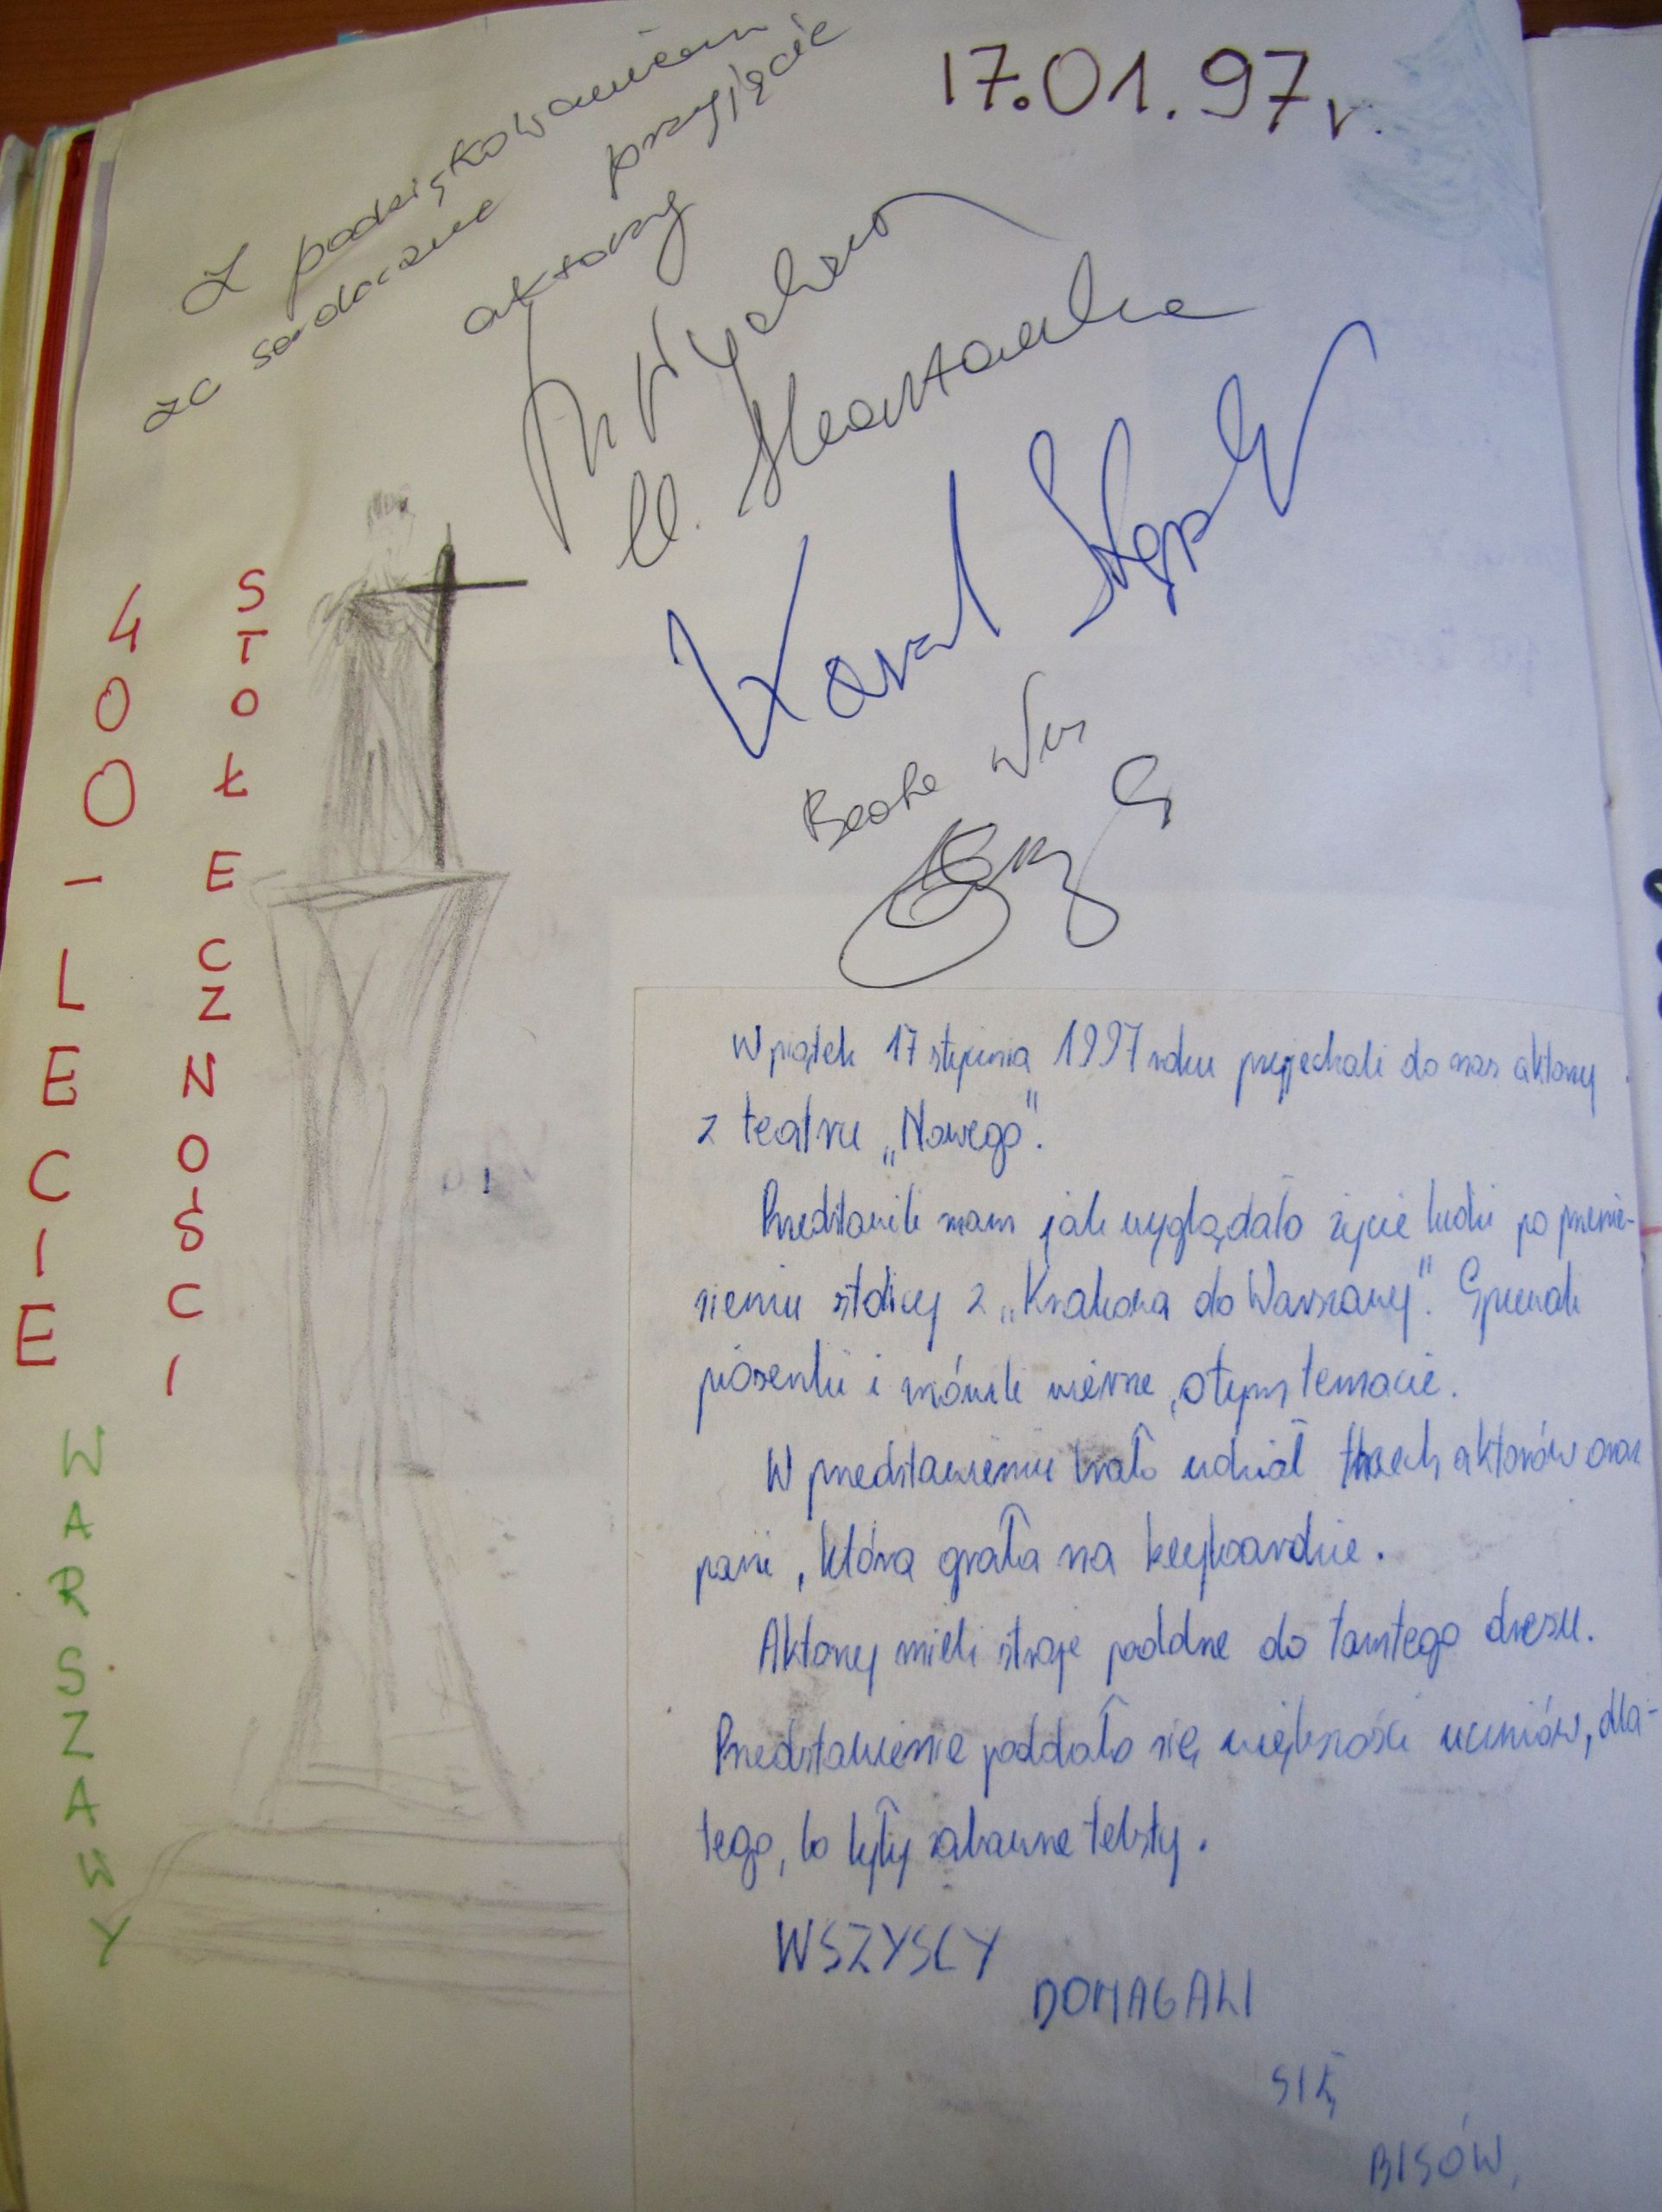 17.01.97r.
Z podziękowaniem
za serdeczne przyjęcie
aktorzy
Karol Stęp
Beata
400-LECIE
STOŁECZNOŚCI
WARSZAWY
W piątek 17 stycznia 1997 roku przyjechali do nas aktorzy
z teatru „Nowego".
Przedstawili nam jak wyglądało życie ludzi po przenie-
sieniu stolicy z „Krakowa do Warszawy". Śpiewali
piosenki i mówili wiersze, o tym temacie.
W przedstawieniu brało udział trzech aktorów oraz
pani, która grała na keyboardzie.
Aktorzy mieli stroje podobne do tamtego okresu.
Przedstawienie podobało się większości uczniów, dla-
tego, bo były zabawne teksty.
WSZYSCY
DOMAGALI
SIĘ
BISÓW,